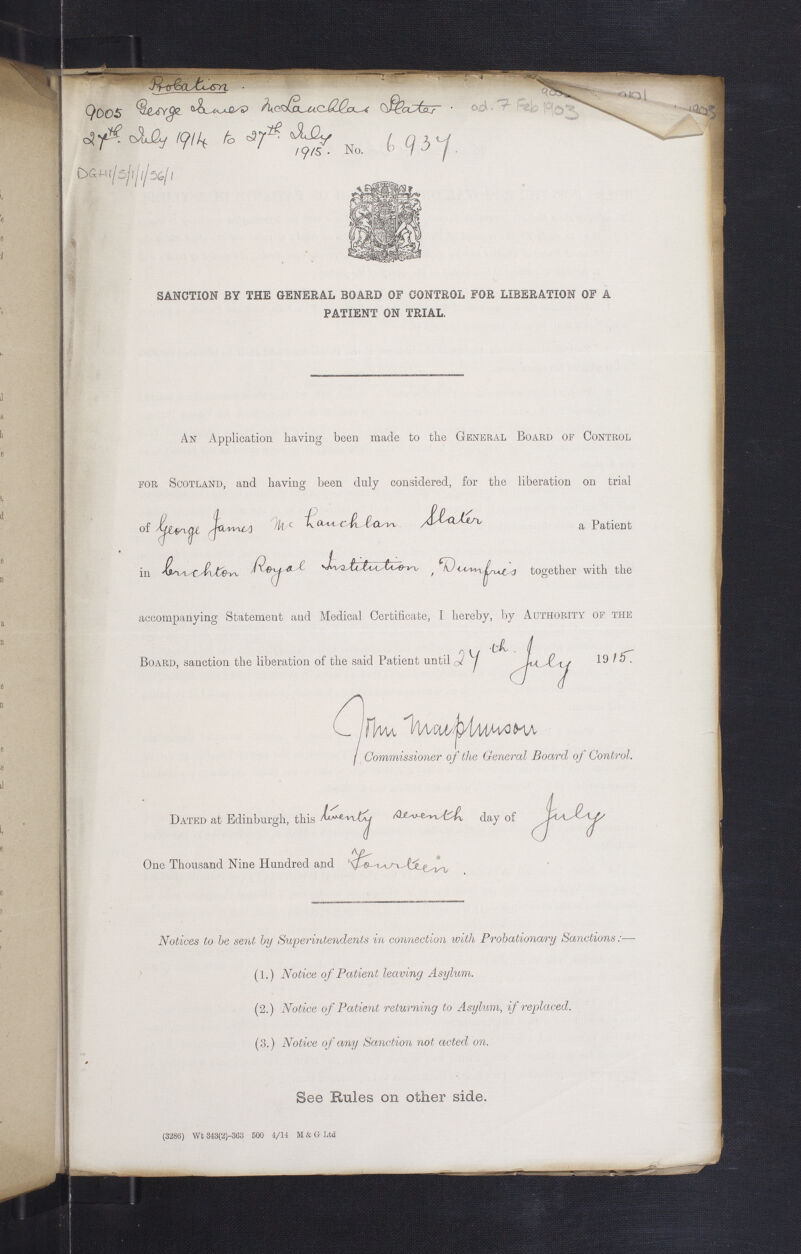 Probation.
9005 George James McLauchlan Slater. ad. 7 Feb 1903
27th. July 1914 to 27th. July
1915. No. 6937.
DGH1/5/1/1/36/1
SANCTION BY THE GENERAL BOARD OF CONTROL FOR LIBERATION OF A
PATIENT ON TRIAL.
AN Application having been made to the GENERAL BOARD OF CONTROL
FOR SCOTLAND, and having been duly considered, for the liberation on trial
of George James Mc Lauchlan Slater a Patient
in Crichton Royal Institution, Dumfries together with the
accompanying Statement and Medical Certificate, I hereby, by AUTHORITY OF THE
BOARD, sanction the liberation of the said Patient until 27th. July 1915.
John Macpherson
Commissioner of the General Board of Control.
DATED at Edinburgh, this twenty seventh day of July
One Thousand Nine Hundred and Fourteen.
Notices to be sent by Superintendents in connection with Probationary Sanctions:—
(1.) Notice of Patient leaving Asylum.
(2.) Notice of Patient returning to Asylum, if replaced.
(3.) Notice of any Sanction not acted on.
See Rules on other side.
(3286) Wt 343(2)-363 500 4/14 M & G Ltd